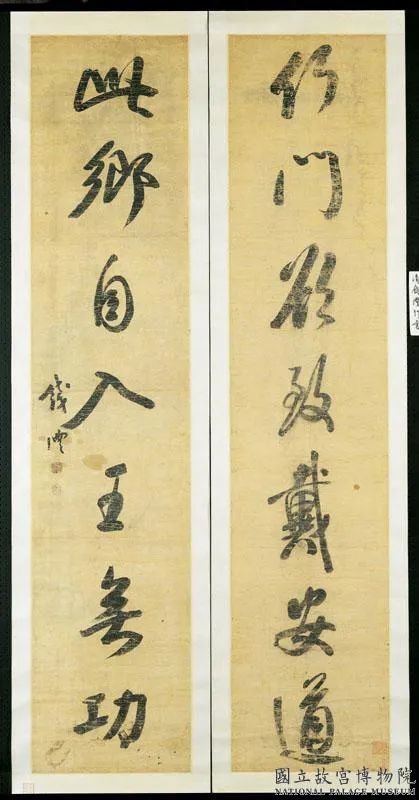 何門欲致戴安道
此鄉自入王無功
錢灃
國立故宮博物院
NATIONAL PALACE MUSEUM